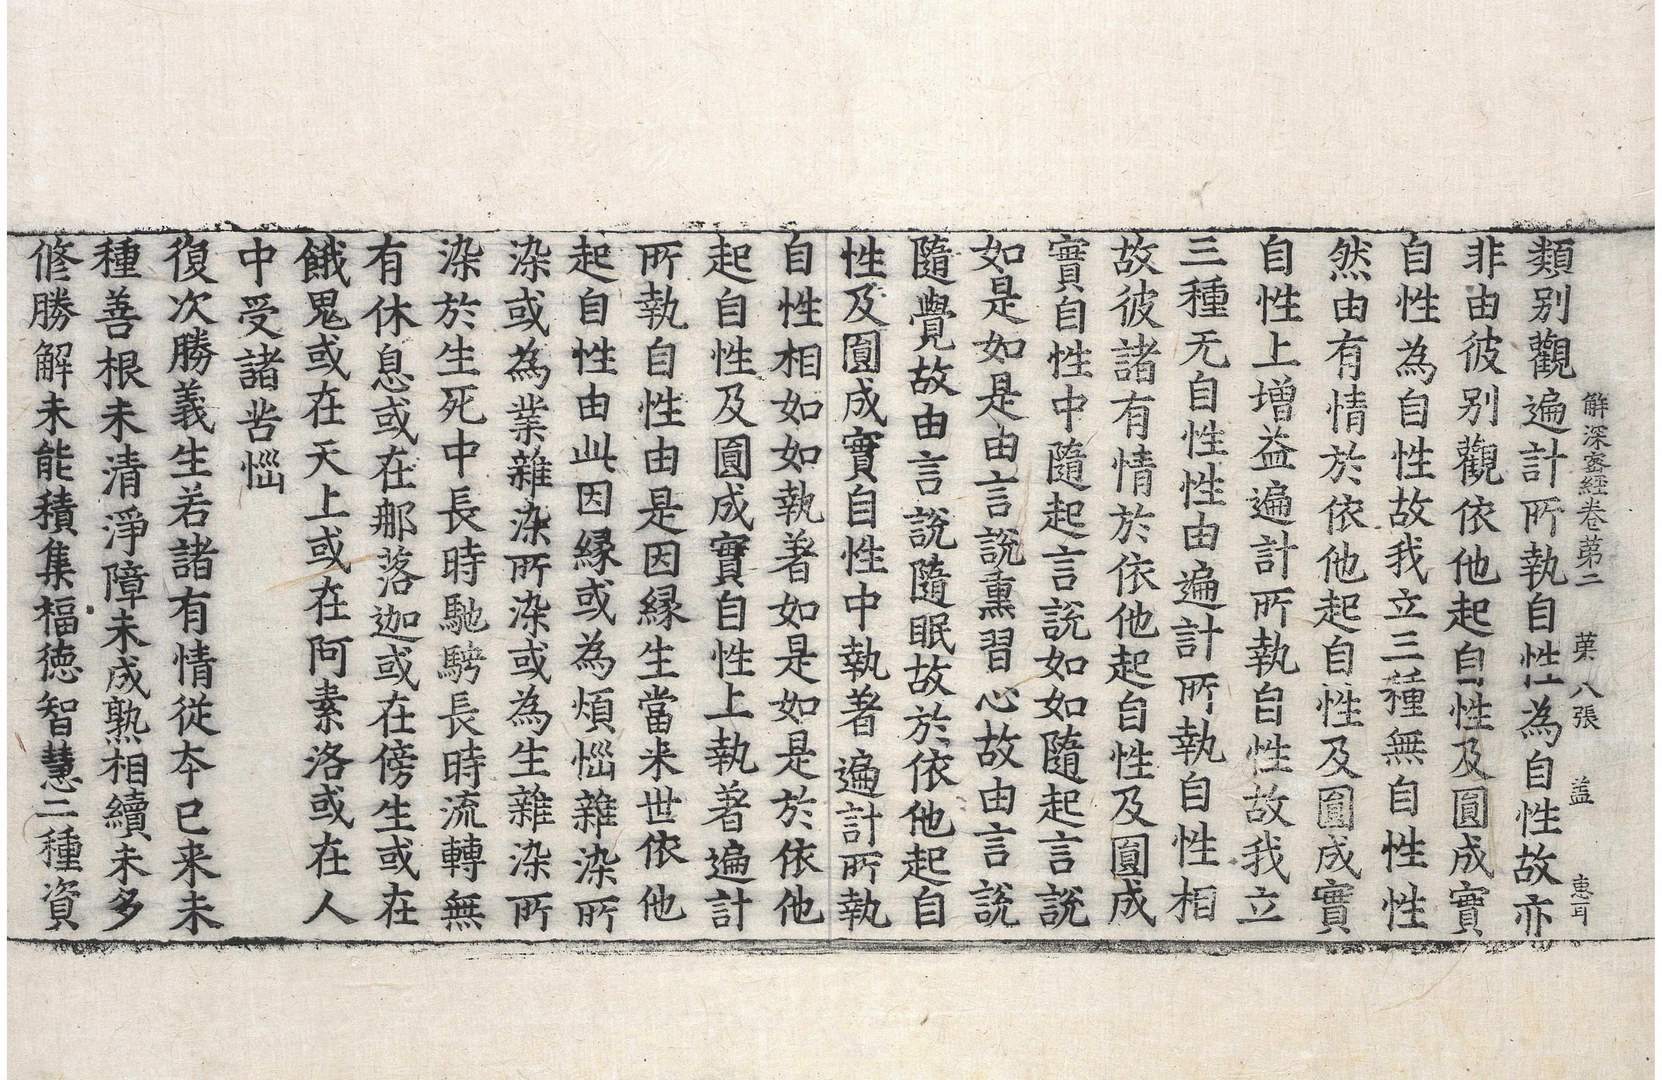 解深宻經卷苐二　苐八張　盖　惠
類别觀遍計所執自性為自性故亦
非由彼别觀依他起自性及圓成實
自性為自性故我立三種無自性性
然由有情於依他起自性及圓成實
自性上增益遍計所執自性故我立
三種无自性性由遍計所執自性相
故彼諸有情於依他起自性及圓成
實自性中隨起言說如如隨起言說
如是如是由言說熏習心故由言說
隨覺故由言說隨眠故於依他起自
性及圓成實自性中執著遍計所執
自性相如如執著如是如是於依他
起自性及圓成實自性上執著遍計
所執自性由是因縁生當来世依他
起自性由此因縁或為煩惱雜染所
染或為業雜染所染或為生雜染所
染於生死中長時馳騁長時流轉無
有休息或在那落迦或在傍生或在
餓鬼或在天上或在阿素洛或在人
中受諸苦惱
復次勝義生若諸有情從夲已来未
種善根未清淨障未成熟相續未多
修勝解未能積集福德智慧二種資